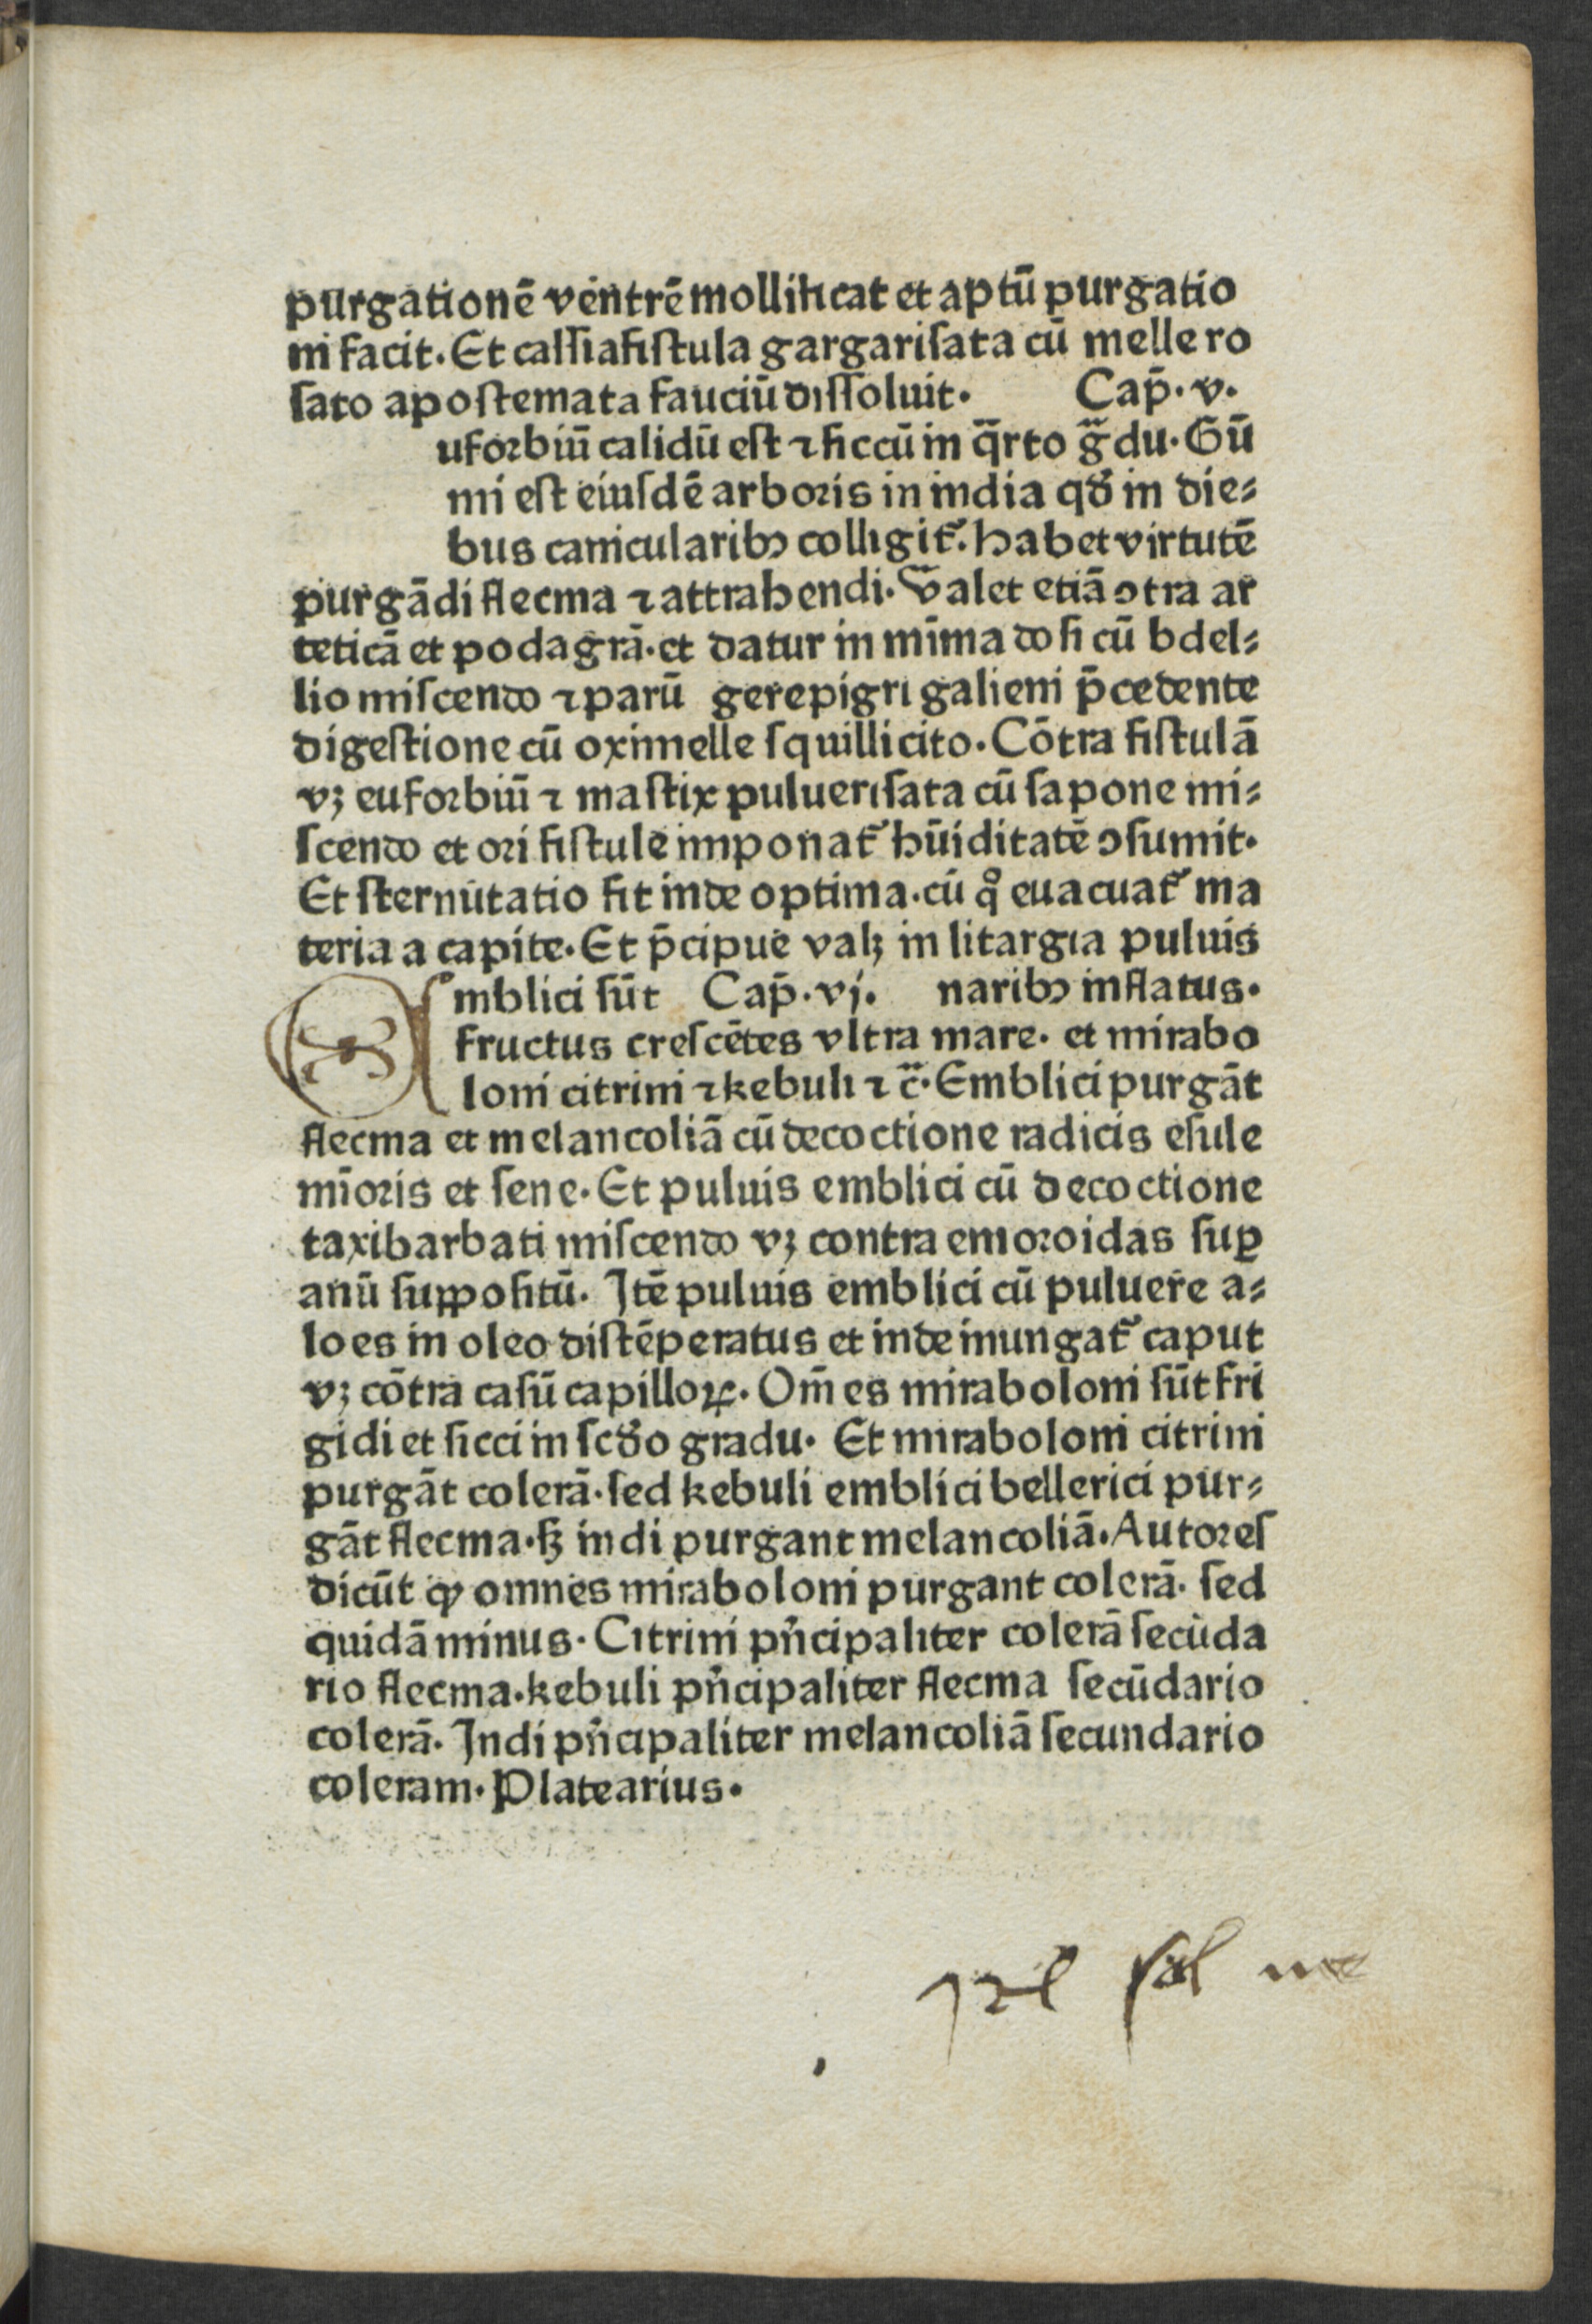 purgationē ventrē mollificat et aptū purgatio
ni facit. Et cassiafiſtula gargariſata cū melle ro
ſato apoſtemata fauciū diſſoluit. Cap̄. v.
uforbiū calidū eſt ⁊ ſiccū in q̄rto ḡdu. Gū
mi eſt eiuſdē arboris in india qđ in die⸗
bus canicularibꝰ colligit᷑. habet virtutē
purgādi flecma ⁊ attrahendi. Valet etiā ↄtra ar
teticā et podagrā. et datur in mīma doſi cū bdel⸗
lio miſcendo ⁊ parū gerepigri galieni p̄cedente
digeſtione cū oximelle ſquillicito. Cōtra fiſtulā
vꝫ euforbiū ⁊ maſtix pulueriſata cū ſapone mi⸗
ſcendo et ori fiſtule imponat᷑ hūiditatē ↄſumit.
Et ſternūtatio fit inde optima. cū qͦ euacuat᷑ ma
teria a capite. Et p̄cipue valꝫ in litargia puluis
Emblici ſūt Cap̄. vj. naribꝰ inflatus.
fructus creſcētes vltra mare. et mirabo
loni citrini ⁊ kebuli ⁊ c̄. Emblici purgāt
flecma et melancoliā cū decoctione radicis eſule
mīoris et ſene. Et puluis emblici cū decoctione
taxibarbati miſcendo vꝫ contra emoroidas ſuꝑ
anū ſuppoſitū. Jtē puluis emblici cū puluere a⸗
loes in oleo diſtēperatus et inde inungat᷑ caput
vꝫ cōtra caſū capilloꝝ. Om̄es miraboloni ſūt fri
gidi et ſicci in ſcđo gradu. Et miraboloni citrini
purgāt colerā. ſed kebuli emblici bellerici pur⸗
gāt flecma. ſꝫ indi purgant melancoliā. Autoreſ
dicūt ꝙ omnes miraboloni purgant colerā. ſed
quidā minus. Citrini pn̄cipaliter colerā ſecūda
rio flecma. kebuli pn̄cipaliter flecma ſecūdario
colerā. Jndi pn̄cipaliter melancoliā ſecundario
coleram. Platearius.